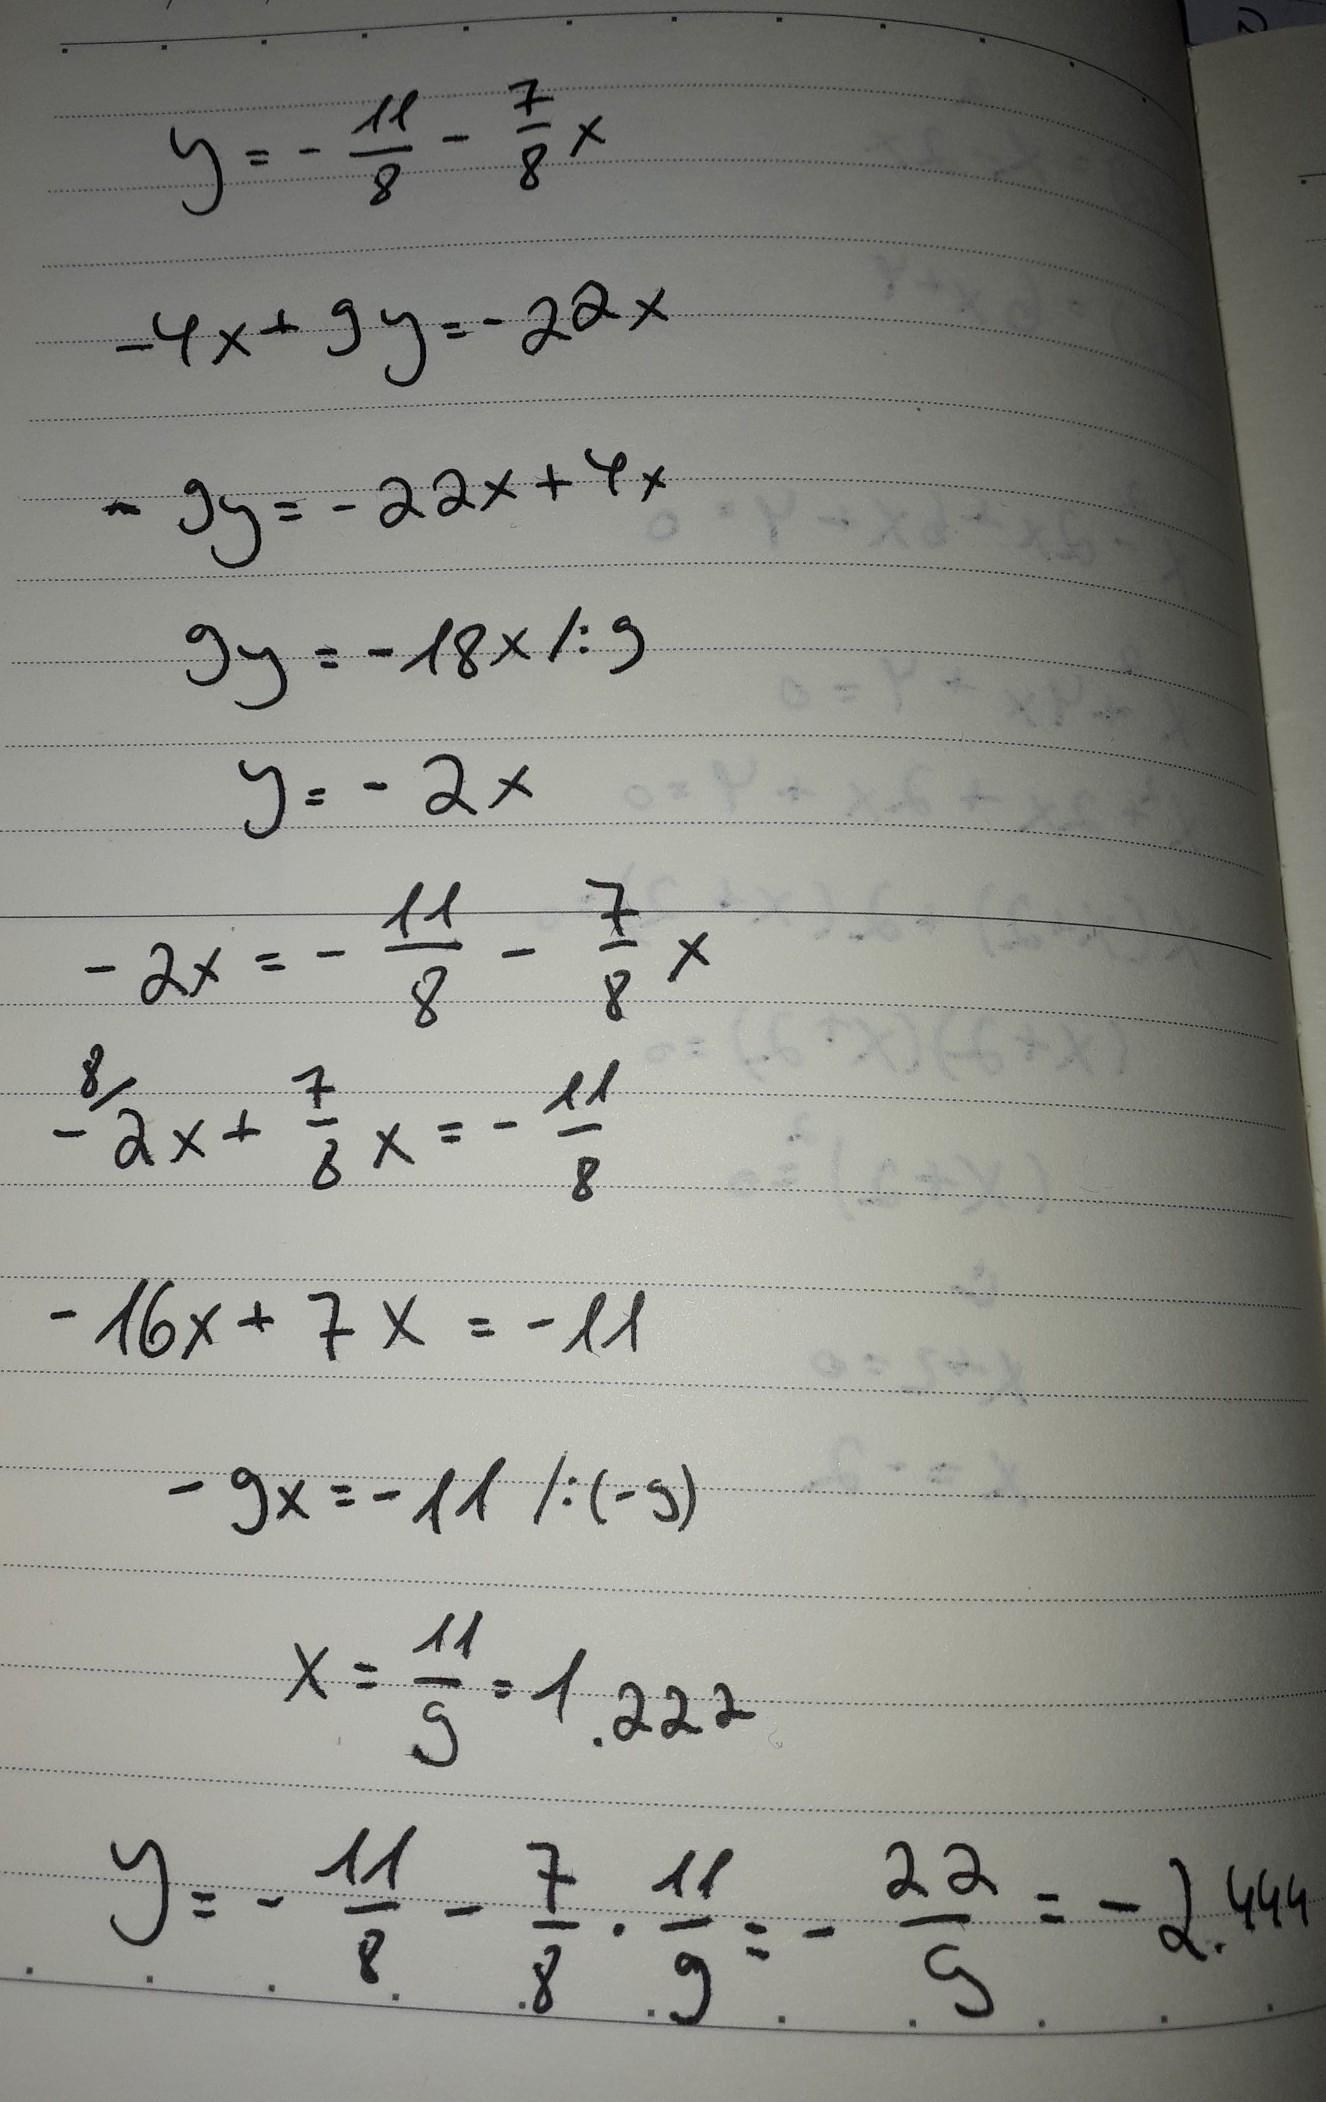 y = - 11/8 - 7/8 x
-4x + 9y = -22x
- 9y = -22x + 4x
9y = -18x /:9
y = -2x
-2x = - 11/8 - 7/8 x
8/ -2x + 7/8 x = - 11/8
-16x + 7x = -11
-9x = -11 /:(-9)
x = 11/9 = 1.222
y = - 11/8 - 7/8 · 11/9 = - 22/9 = -2.444